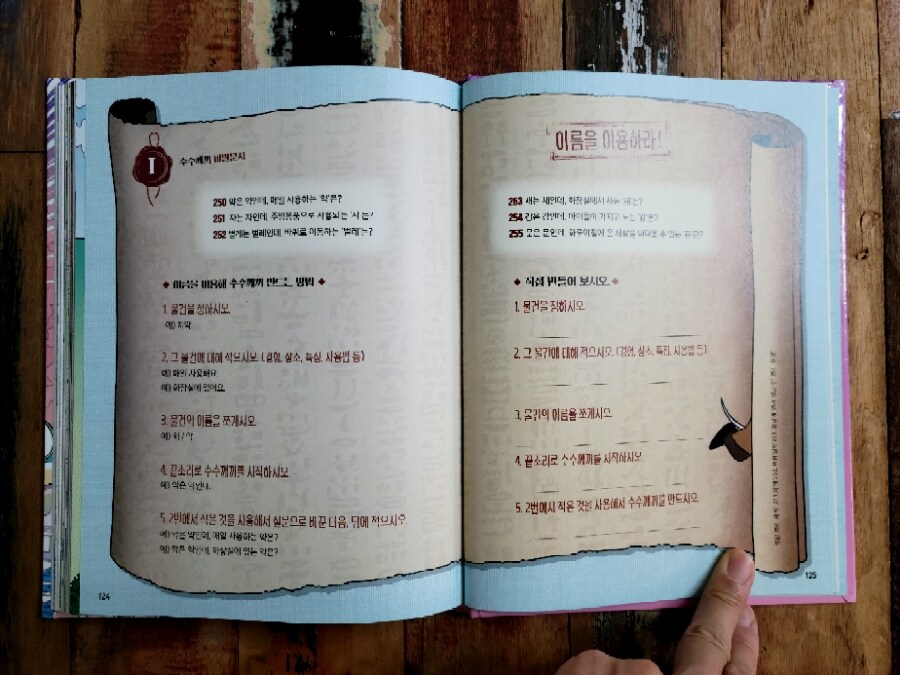 I
수수께끼 비밀문서
250 약은 약인데, 매일 사용하는 '약'은?
251 자는 자인데, 주방용품으로 사용되는 '자'는?
252 벌레는 벌레인데, 바퀴로 이동하는 '벌레'는?
◆ 이름을 이용해 수수께끼 만드는 방법 ◆
1. 물건을 정하시오.
예) 치약
2. 그 물건에 대해 적으시오. (경험, 장소, 특징, 사용법 등)
예) 매일 사용해요.
예) 화장실에 있어요.
3. 물건의 이름을 쪼개시오.
예) 치 / 약
4. 끝소리로 수수께끼를 시작하시오.
예) 약은 약인데,
5. 2번에서 적은 것을 사용해서 질문으로 바꾼 다음, 뒤에 적으시오.
예) 약은 약인데, 매일 사용하는 약은?
예) 약은 약인데, 화장실에 있는 약은?
124
이름을 이용하라!
263 새는 새인데, 화장실에서 사는 '새'는?
254 감은 감인데, 아이들이 가지고 노는 '감'은?
255 문은 문인데,
◆ 직접 만들어 보시오. ◆
1. 물건을 정하시오.
2. 그 물건에 대해 적으시오. (경험, 장소, 특징, 사용법 등)
3. 물건의 이름을 쪼개시오.
4. 끝소리로 수수께끼를 시작하시오.
5. 2번에서 적은 것을 사용해서 수수께끼를 만드시오.
125